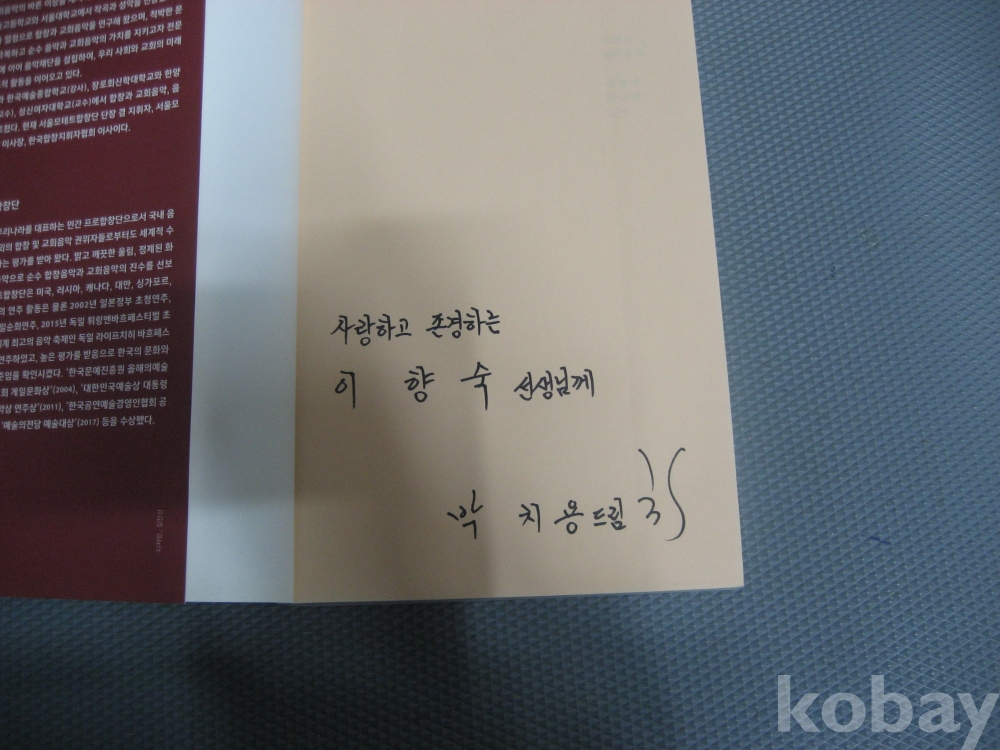 고등학교와 서울대학교에서 작곡과 성악을
열정으로 합창과 교회음악을 연구해 왔으며, 척박한 문
복하고 순수 음악과 교회음악의 가치를 지키고자 전문
에 이어 음악재단을 설립하여, 우리 사회와 교회의 미래
적 활동을 이어오고 있다.
한국예술종합학교(강사), 장로회신학대학교와 한양
교수), 성신여자대학교(교수)에서 합창과 교회음악, 음
쳤다. 현재 서울모테트합창단 단장 겸 지휘자, 서울모
이사장, 한국합창지휘자협회 이사이다.
합창단
우리나라를 대표하는 민간 프로합창단으로서 국내 음
외의 합창 및 교회음악 권위자들로부터도 세계적 수
는 평가를 받아 왔다. 맑고 깨끗한 울림, 정제된 화
음악으로 순수 합창음악과 교회음악의 진수를 선보
트합창단은 미국, 러시아, 캐나다, 대만, 싱가포르,
의 연주 활동은 물론 2002년 일본정부 초청연주,
일순회연주, 2015년 독일 튀링엔바흐페스티벌 초
계 최고의 음악 축제인 독일 라이프치히 바흐페스
연주하였고, 높은 평가를 받음으로 한국의 문화와
준임을 확인시켰다. '한국문예진흥원 올해의예술
회 게일문화상'(2004), '대한민국예술상 대통령
악상 연주상'(2011), '한국공연예술경영인협회 공
'예술의전당 예술대상'(2017) 등을 수상했다.
디자인_
사랑하고 존경하는
이 향 숙 선생님께
박 치 용 드림
kobay